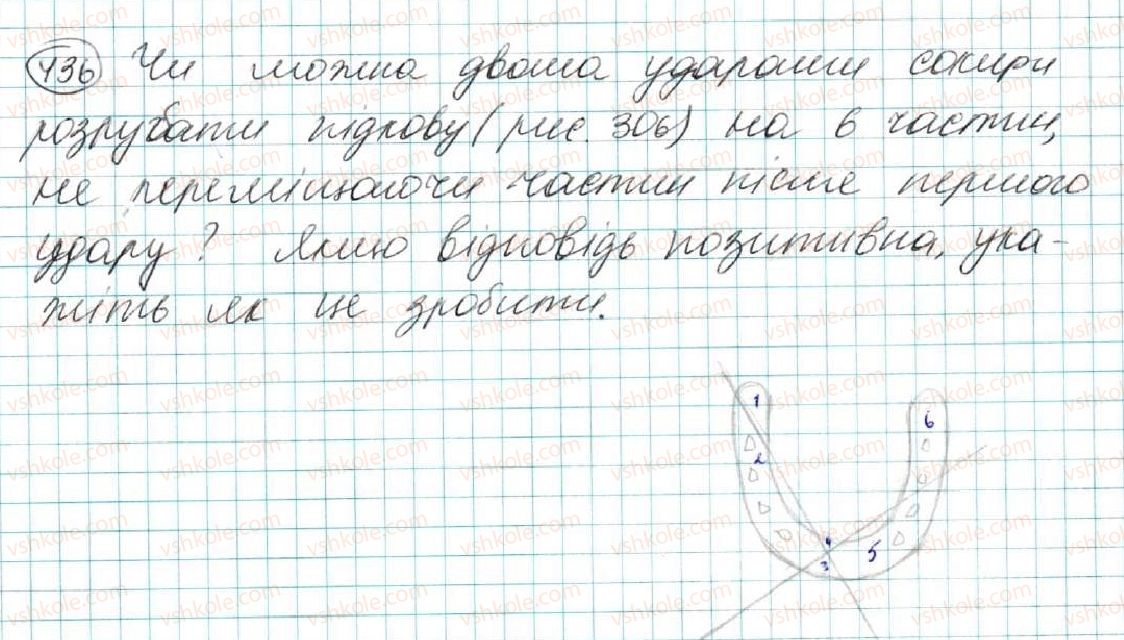 436 Чи можна двома ударами сокири
розрубати підкову (рис. 306) на 6 частин,
не переміщаючи частин після першого
удару? Якщо відповідь позитивна, ука-
жіть як це зробити.
1
6
2
4
3
5
vshkole.com